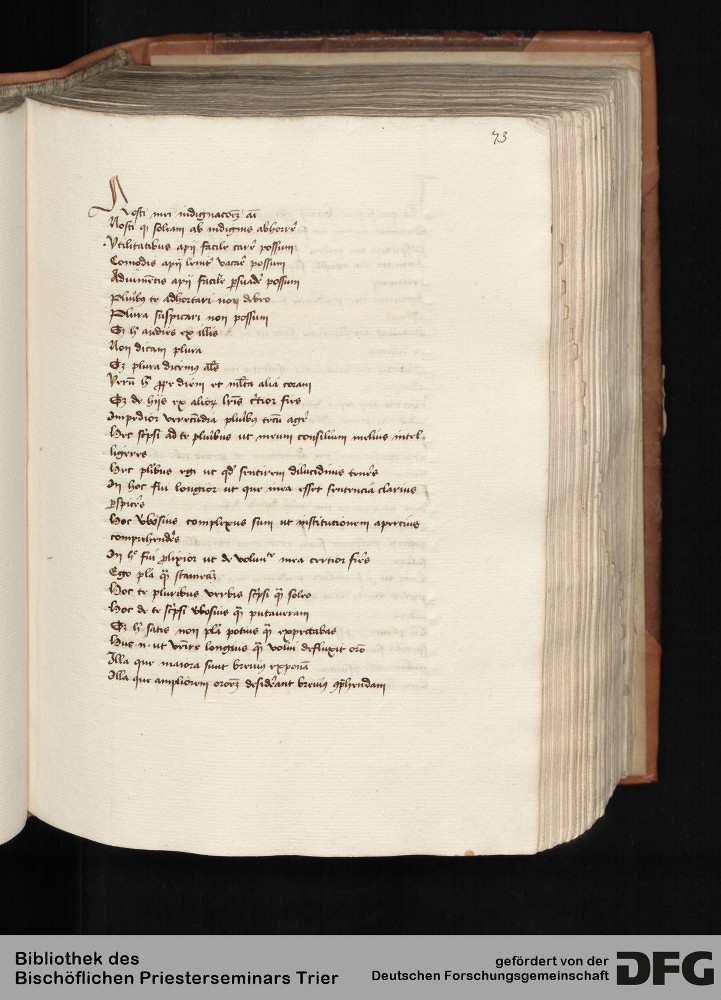 73
Nosti mei indignacōēȝ aī
Nosti qͥ soleam ab indignis abhorrē
Utilitatibus apij facile carē possum
Comodis apij leniṫ vacarē possum
Aduimētis apij facile ꝑsuadē possum
Plurib9 te adhortari non debeo
Plura suspicari non possum
Sȝ h̄ audies ex illis
Non dicam plura
Sȝ plura dicem9 al̄s
Verū h̄ ꝓpe diem et ml̄ta alia coram
Sȝ de hijs ex alioꝝ lr̄is c̄tior fies
Impedior verecūdia plurib9 tecū agē
Hec sc̄psi ad te pluribus ut meum consilium melius intel-
ligeres
Hec plibus egi ut qd̛ sentirem dilucidius tenēs
In hoc fui longior ut que mea esset sentencia clarius
ꝑspicēs
Hoc v̄bosius complexus sum ut institucionem apercius
comprehendēs
In h̊ fui ꝓlixior ut de volunᵗᵉ mea certior fiēs
Ego pl̄a qͣ̄ statueraȝ
Hoc te pluribus verbis sc̄psi qͣ̄ soleo
Hoc de te sc̄psi v̄bosius qͣ̄ putaueram
Sȝ h̄ satis non pl̄a potius qͣ̄ expectabas
Huc .n. ut
longius qͣ̄ volui defluxit orō
Illa que maiora sunt breui9 exponā
Illa que ampliorem orōēȝ desiderant breui9 ꝯp̄hendam
Bibliothek des
Bischöflichen Priesterseminars Trier
gefördert von der
Deutschen Forschungsgemeinschaft
DFG